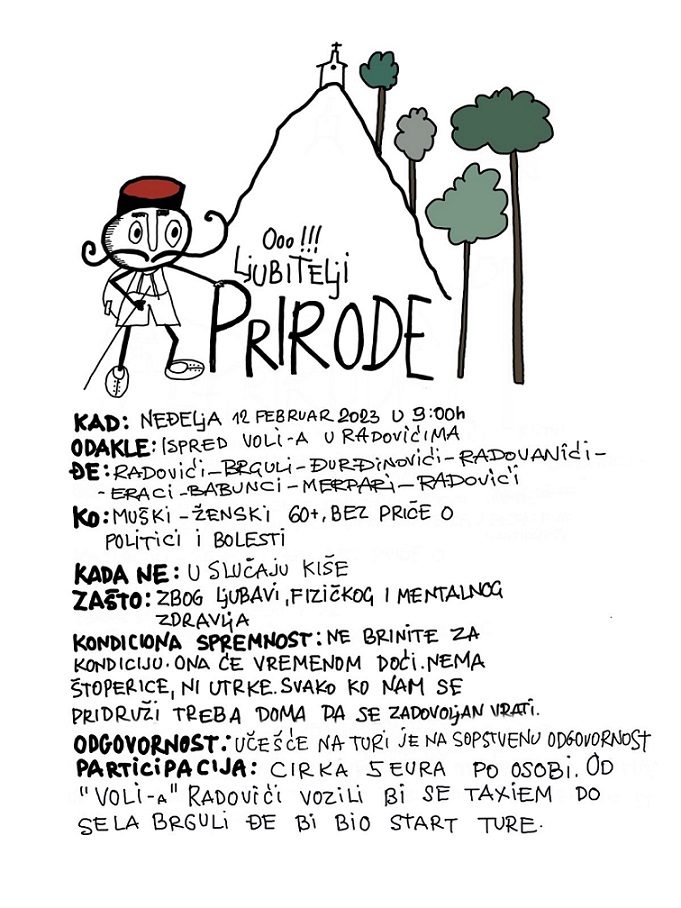 Ooo!!!
LJUBITELJI
PRIRODE
KAD: NEĐELJA 12 FEBRUAR 2023 U 9:00h
ODAKLE: ISPRED VOLI-A U RADOVIĆIMA
ĐE: RADOVIĆI-BRGULI-ĐURĐINOVIĆI-RADOVANIĆI-
-ERACI-BABUNCI-MERPARI-RADOVIĆI
KO: MUŠKI-ŽENSKI 60+, BEZ PRIČE O
POLITICI I BOLESTI
KADA NE: U SLUČAJU KIŠE
ZAŠTO: ZBOG LJUBAVI, FIZIČKOG I MENTALNOG
ZDRAVLJA
KONDICIONA SPREMNOST: NE BRINITE ZA
KONDICIJU. ONA ĆE VREMENOM DOĆI. NEMA
ŠTOPERICE, NI UTRKE. SVAKO KO NAM SE
PRIDRUŽI TREBA DOMA DA SE ZADOVOLJAN VRATI.
ODGOVORNOST: UČEŠĆE NA TURI JE NA SOPSTVENU ODGOVORNOST
PARTICIPACIJA: CIRKA 5 EURA PO OSOBI. OD
"VOLI-A" RADOVIĆI VOZILI BI SE TAXIEM DO
SELA BRGULI ĐE BI BIO START TURE.